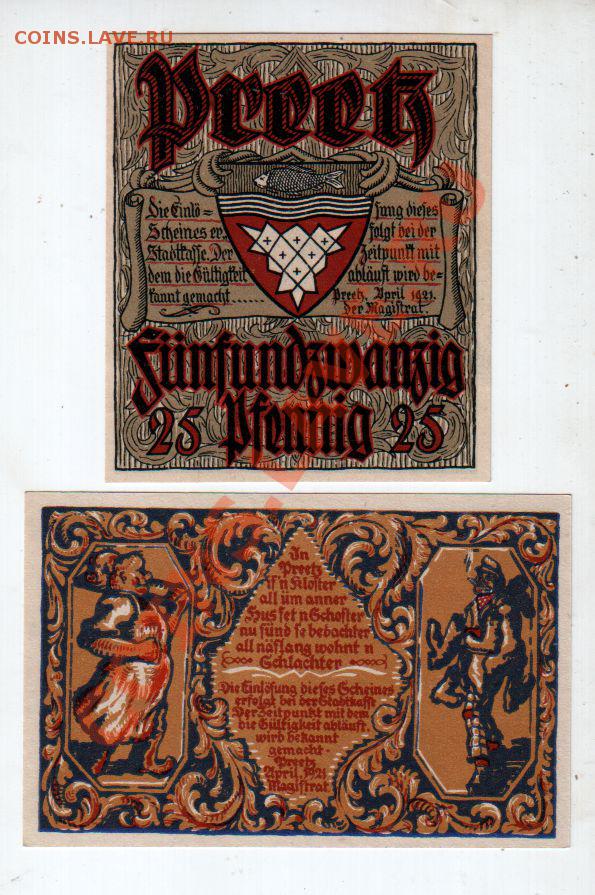 COINS.LAVE.RU
Preetz
Die Einlö=
sung dieses
Scheines er
folgt bei der
Stadtkasse. Der
Zeitpunkt mit
dem die Gültigkeit
abläuft wird be-
kannt gemacht......
Preetz, April 1921.
Der Magistrat.
Fünfundzwanzig
25 Pfennig 25
In
Preetz
is'n Kloster
all üm anner
Hus set n Schoster
nu sünd se bedachter
all näslang wohnt n
Schlachter
Die Einlösung dieses Scheines
erfolgt bei der Stadtkasse
Der Zeitpunkt mit dem
die Gültigkeit abläuft
wird bekannt
gemacht-
Preetz
April 1921
Magistrat